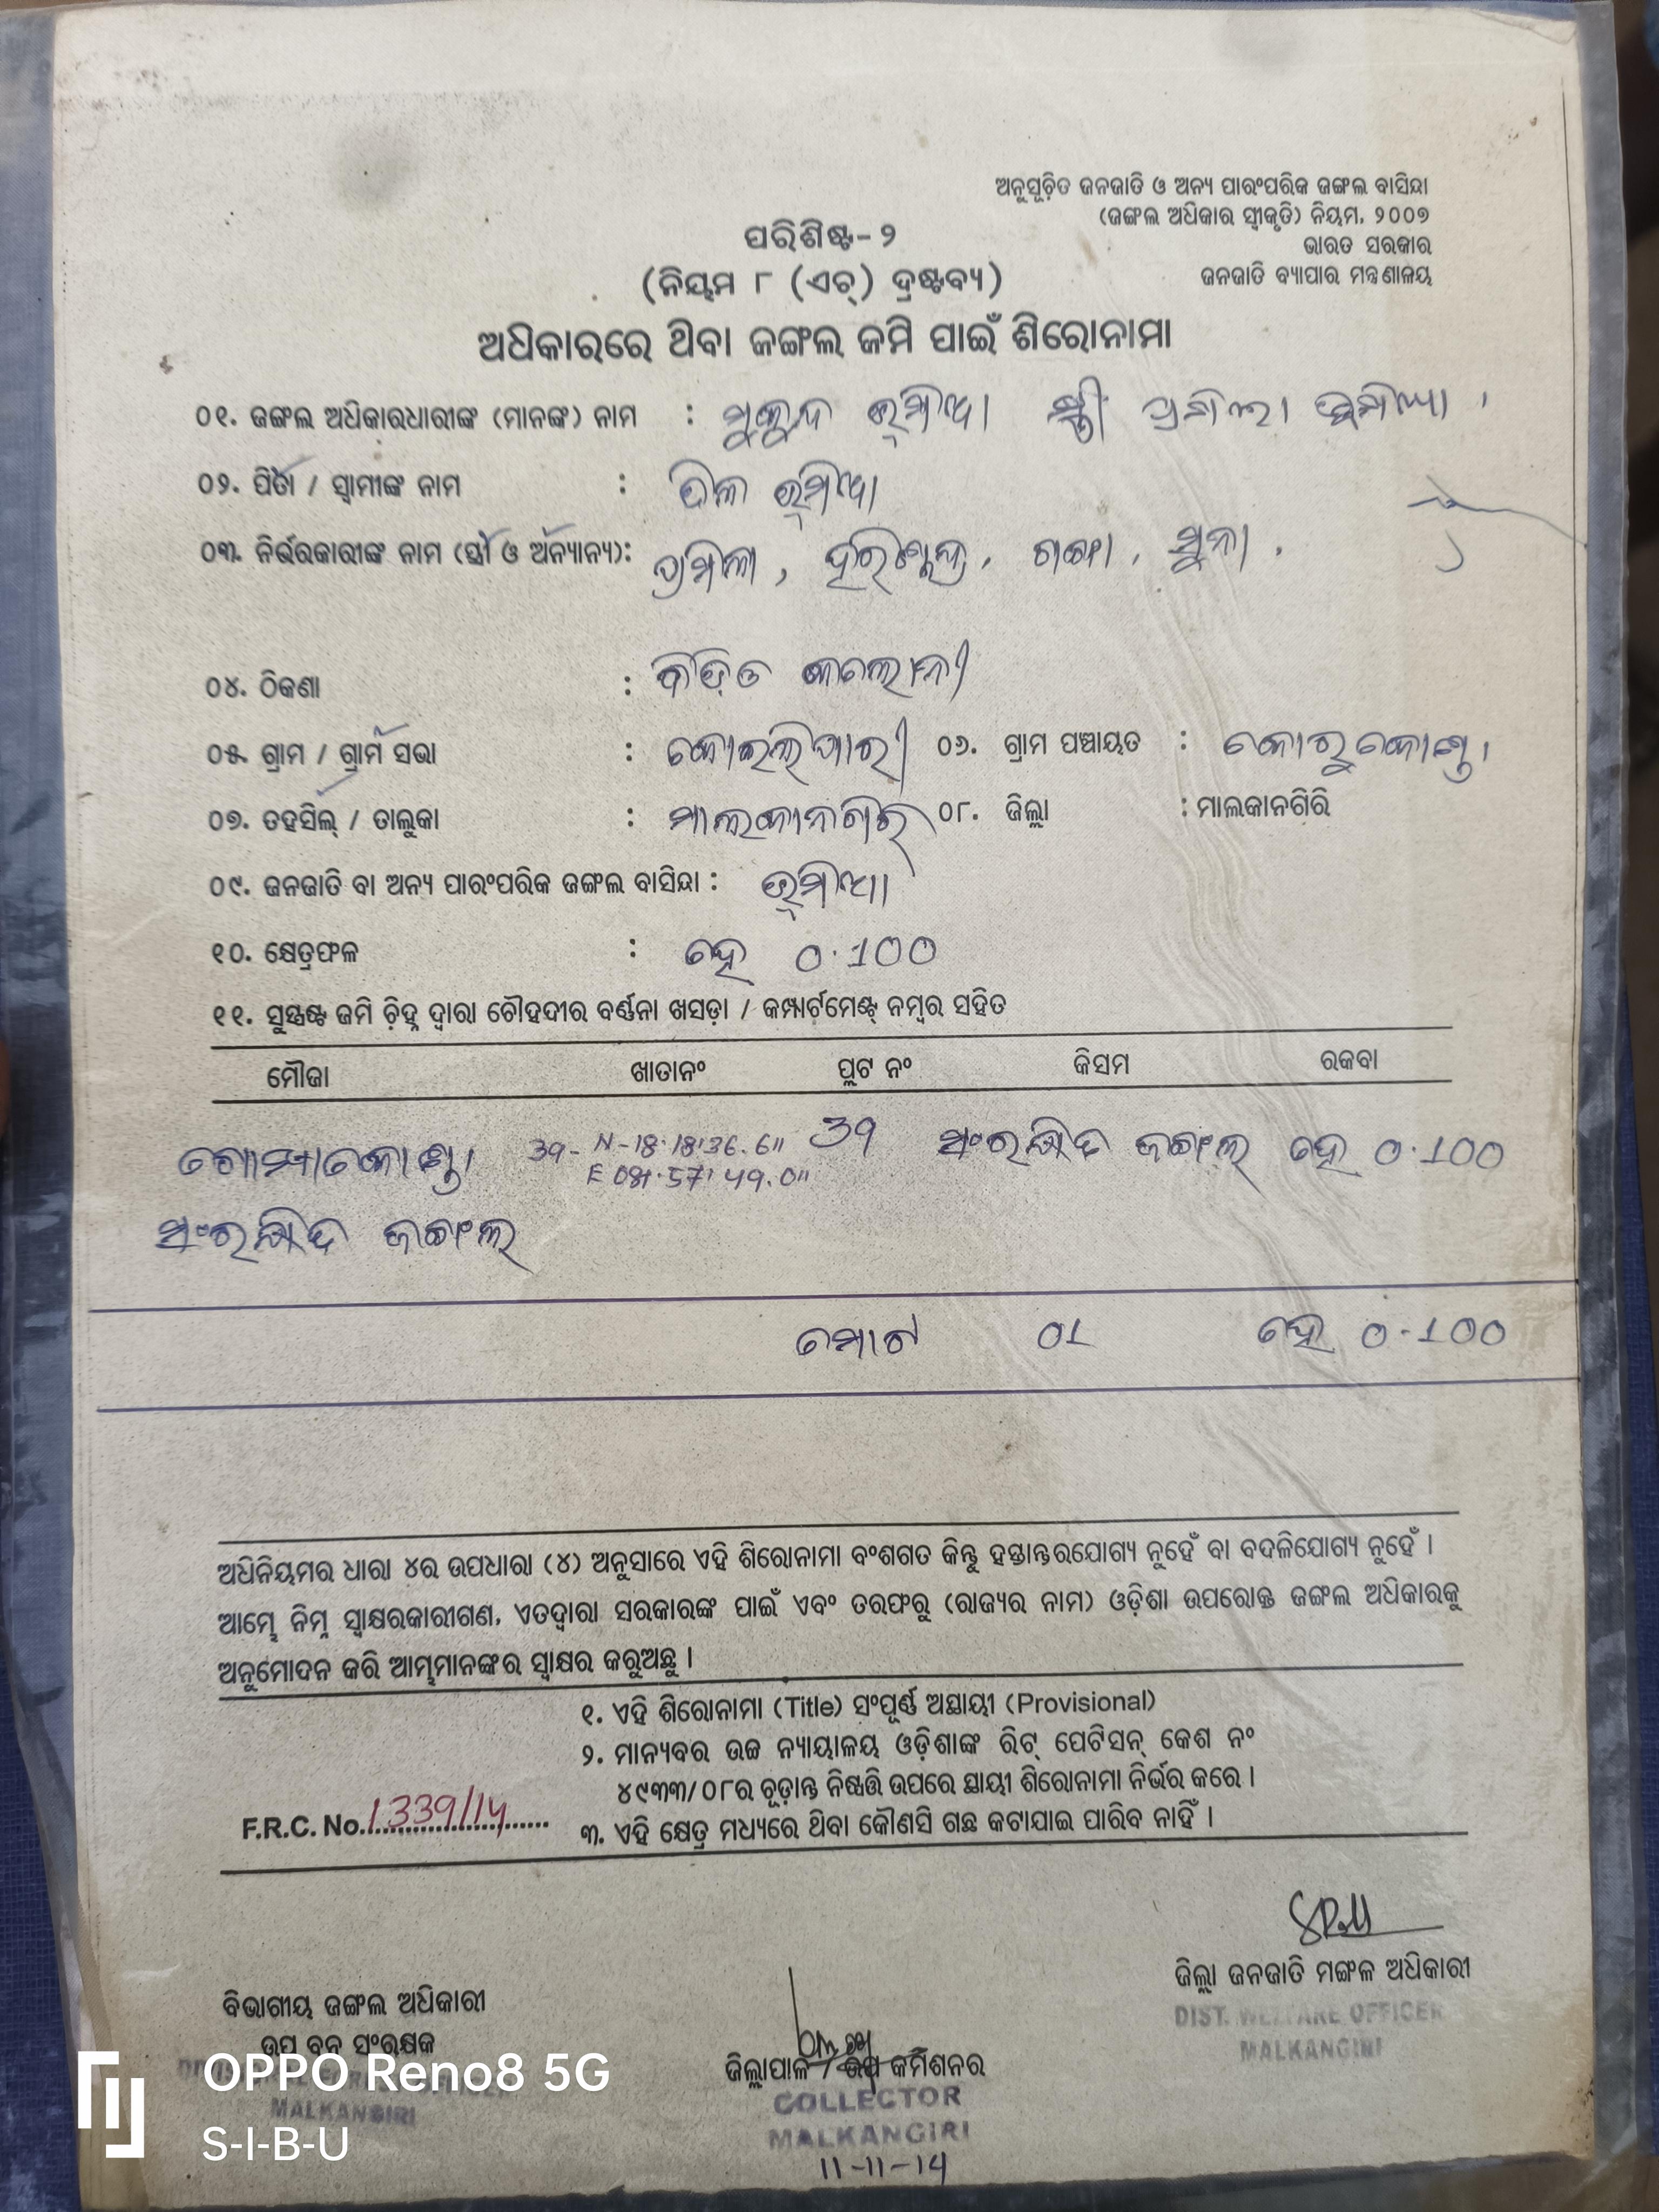 ଅନୁସୂଚିତ ଜନଜାତି ଓ ଅନ୍ୟ ପାରଂପରିକ ଜଙ୍ଗଲ ବାସିନ୍ଦା
(ଜଙ୍ଗଲ ଅଧିକାର ସ୍ୱୀକୃତି) ନିୟମ, ୨୦୦୭
ଭାରତ ସରକାର
ଜନଜାତି ବ୍ୟାପାର ମନ୍ତ୍ରଣାଳୟ
ପରିଶିଷ୍ଟ-୨
(ନିୟମ ୮ (ଏଚ୍) ଦ୍ରଷ୍ଟବ୍ୟ)
ଅଧିକାରରେ ଥିବା ଜଙ୍ଗଲ ଜମି ପାଇଁ ଶିରୋନାମା
୦୧. ଜଙ୍ଗଲ ଅଧିକାରଧାରୀଙ୍କ (ମାନଙ୍କ) ନାମ : ମୁକୁନ୍ଦ ଭୂମିଆ ସ୍ତ୍ରୀ ପ୍ରମିଲା ଭୂମିଆ ।
୦୨. ପିତା / ସ୍ୱାମୀଙ୍କ ନାମ : ଭୂମିଆ
୦୩. ନିର୍ଭରକାରୀଙ୍କ ନାମ (ସ୍ତ୍ରୀ ଓ ଅନ୍ୟାନ୍ୟ): ପ୍ରମିଳା, ହରିଶ୍ଚନ୍ଦ୍ର, ଗଙ୍ଗା, ମୁନା.
୦୪. ଠିକଣା : କଲୋନୀ
୦୫. ଗ୍ରାମ / ଗ୍ରାମ ସଭା : କୋଇଲିପାରୀ ୦୬. ଗ୍ରାମ ପଞ୍ଚାୟତ : କୋରୁକୋଣ୍ଡା
୦୭. ତହସିଲ୍ / ତାଲୁକା : ମାଲକାନଗିରି ୦୮. ଜିଲ୍ଲା : ମାଲକାନଗିରି
୦୯. ଜନଜାତି ବା ଅନ୍ୟ ପାରଂପରିକ ଜଙ୍ଗଲ ବାସିନ୍ଦା : ଭୂମିଆ
୧୦. କ୍ଷେତ୍ରଫଳ : ହେ 0.100
୧୧. ସୁସ୍ପଷ୍ଟ ଜମି ଚିହ୍ନ ଦ୍ୱାରା ଚୌହଦୀର ବର୍ଣ୍ଣନା ଖସଡ଼ା / କମ୍ପାର୍ଟମେଣ୍ଟ୍ ନମ୍ବର ସହିତ
ମୌଜା ଖାତାନଂ ପ୍ଲଟ ନଂ କିସମ ରକବା
ଗୋମ୍ପାକୋଣ୍ଡା 39- N-18.18'36.6" 39 ସଂରକ୍ଷିତ ଜଙ୍ଗଲ ହେ 0.100
E 081.57' 49.0"
ସଂରକ୍ଷିତ ଜଙ୍ଗଲ
ମୋଟ 01 ହେ 0-100
ଅଧିନିୟମର ଧାରା ୪ର ଉପଧାରା (୪) ଅନୁସାରେ ଏହି ଶିରୋନାମା ବଂଶଗତ କିନ୍ତୁ ହସ୍ତାନ୍ତରଯୋଗ୍ୟ ନୁହେଁ ବା ବଦଳିଯୋଗ୍ୟ ନୁହେଁ ।
ଆମ୍ଭେ ନିମ୍ନ ସ୍ୱାକ୍ଷରକାରୀଗଣ, ଏତଦ୍ଦ୍ୱାରା ସରକାରଙ୍କ ପାଇଁ ଏବଂ ତରଫରୁ (ରାଜ୍ୟର ନାମ) ଓଡ଼ିଶା ଉପରୋକ୍ତ ଜଙ୍ଗଲ ଅଧିକାରକୁ
ଅନୁମୋଦନ କରି ଆମ୍ଭମାନଙ୍କର ସ୍ୱାକ୍ଷର କରୁଅଛୁ ।
୧. ଏହି ଶିରୋନାମା (Title) ସଂପୂର୍ଣ୍ଣ ଅସ୍ଥାୟୀ (Provisional)
୨. ମାନ୍ୟବର ଉଚ୍ଚ ନ୍ୟାୟାଳୟ ଓଡ଼ିଶାଙ୍କ ରିଟ୍ ପେଟିସନ୍ କେଶ ନଂ
୪୯୩୩/୦୮ର ଚୂଡ଼ାନ୍ତ ନିଷ୍ପତ୍ତି ଉପରେ ସ୍ଥାୟୀ ଶିରୋନାମା ନିର୍ଭର କରେ ।
F.R.C. No. 1339/14
୩. ଏହି କ୍ଷେତ୍ର ମଧ୍ୟରେ ଥିବା କୌଣସି ଗଛ କଟାଯାଇ ପାରିବ ନାହିଁ ।
ଜିଲ୍ଲା ଜନଜାତି ମଙ୍ଗଳ ଅଧିକାରୀ
DIST. WELFARE OFFICER
MALKANGIRI
ବିଭାଗୀୟ ଜଙ୍ଗଲ ଅଧିକାରୀ
ଉପ ବନ ସଂରକ୍ଷକ
MALKANGIRI
ଜିଲ୍ଲାପାଳ / ଉପ କମିଶନର
COLLECTOR
MALKANGIRI
11-11-14
OPPO Reno8 5G
S-I-B-U